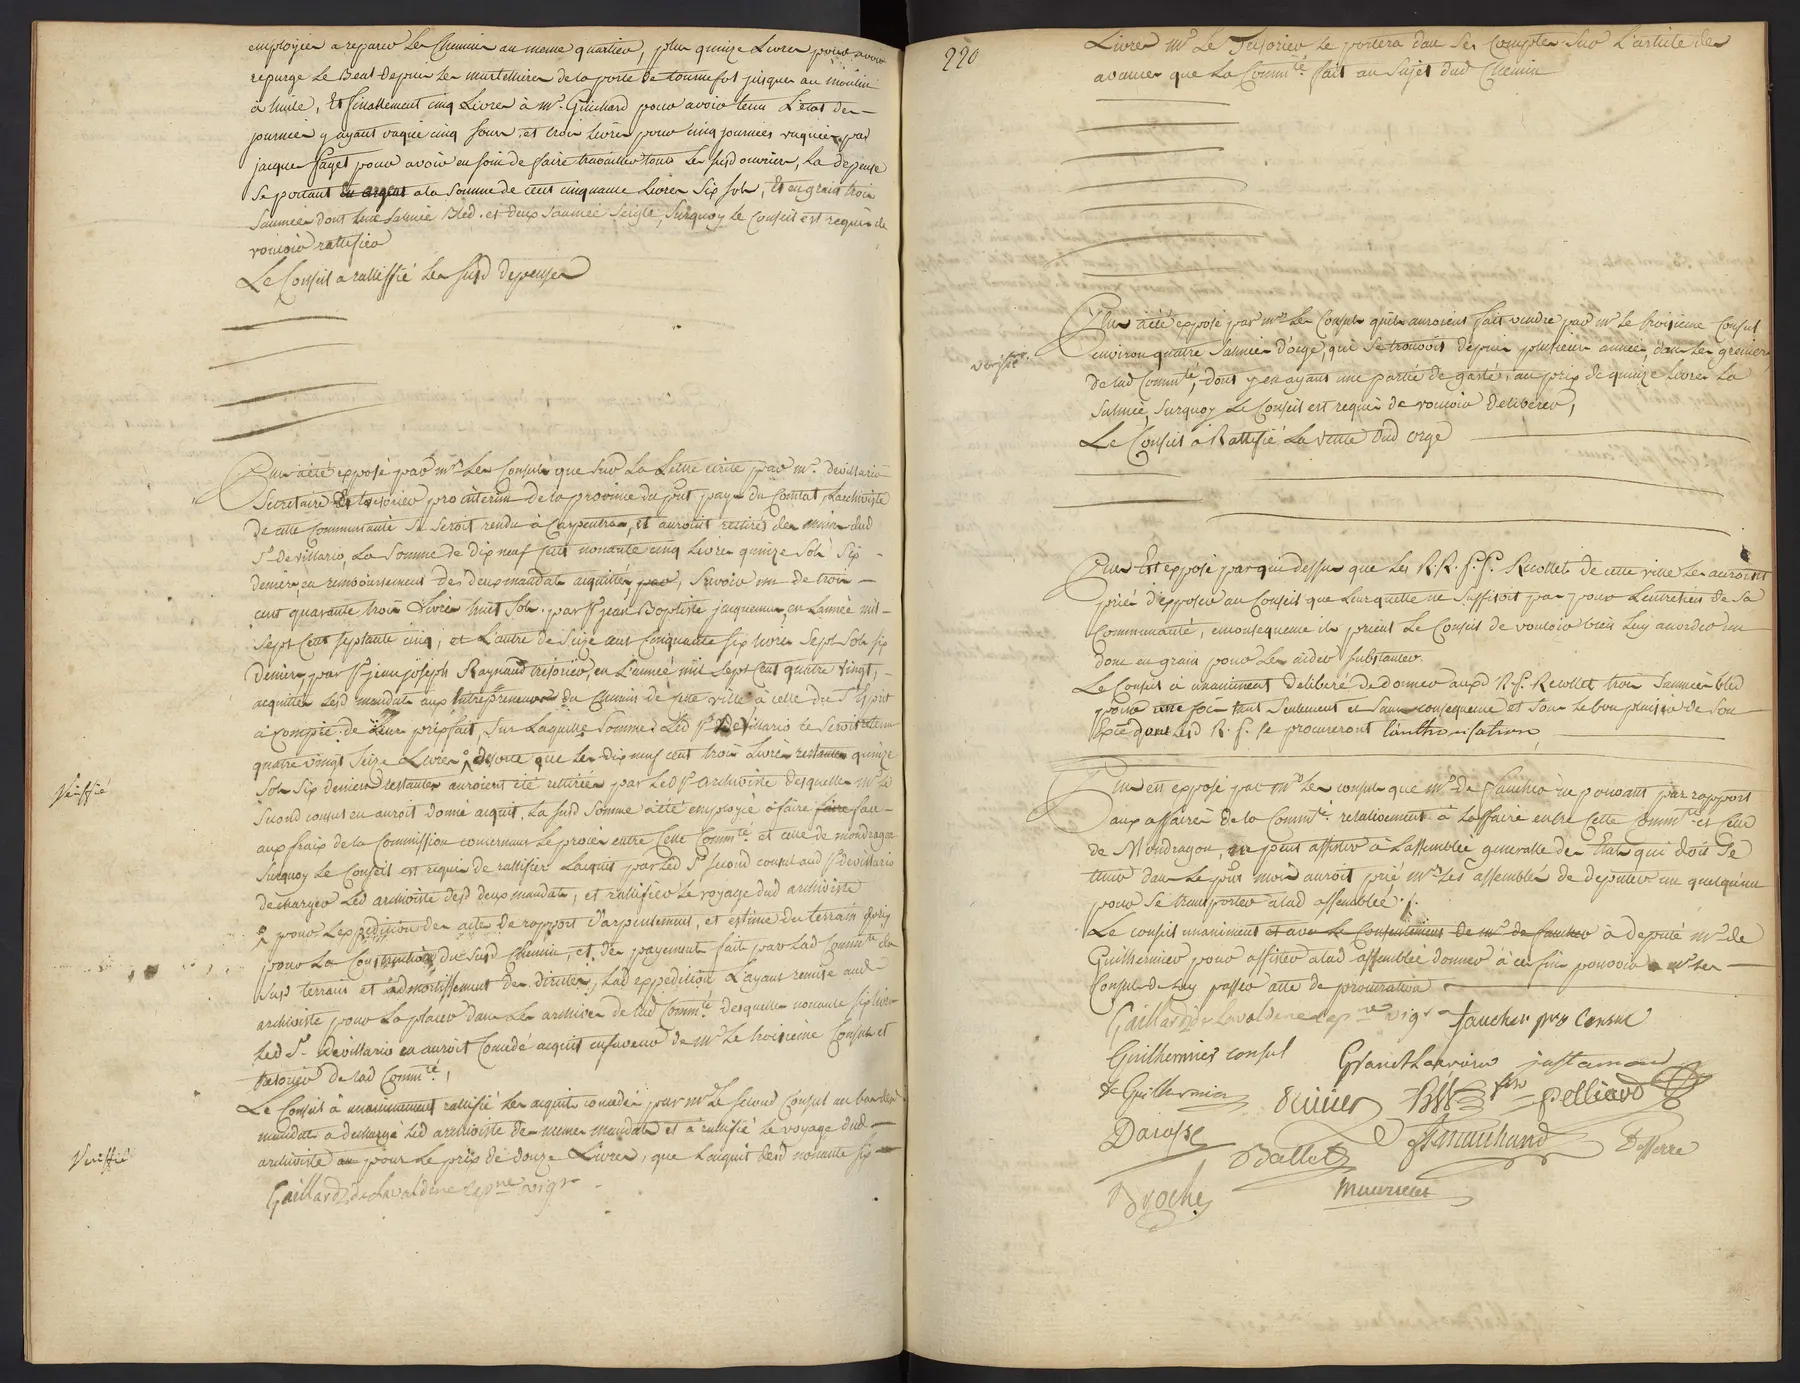 employée a reparer les Chemins au meme quartier, plus quinze Livres pour avoir
repurgé Le Beal depuis les martellieres de la porte de tournefol jusques au moulin
à huile, Et finallement cinq Livres à mr. Guichard pour avoir tenu L'état des
journées y ayant vaqué cinq jours, et trois Livres pour cinq journées vaquées par
jacques fayet pour avoir eu soin de faire travailler tous les susd ouvriers, La depense
se portant en argent a la somme de cent cinquante Livres six sols, Et en grain trois
saumées dont une salmée Bled. et deux saumée seigle, surquoy Le Conseil est requis de
vouloir ratifier
Le Conseil a ratiffié les susd depenses
Plus a été exposé par mrs Les Consuls que sur La Lettre écrite par mr. devillario
Secretaire Et tresorier pro interim de la province du pnt pays du Comtat, Larchiviste
de cette Communauté se seroit rendu à Carpentras, et auroit retiré des mains dud
Sr. de villario, La somme de dix neuf cent nonante cinq Livres quinze sols six
deniers, en remboursement des deux mandats acquittés, par, sçavoir un de trois
cent quarante trois Livres huit sols. par Sr jean Baptiste jacquemin, en Lannée mil
sept cent septante cinq, et L'autre de seize cent cinquante six livres sept sols six
deniers, par Sr jean joseph Raynaud tresorier, en L'année mil sept cent quatre vingt,
acquittés lesd mandats aux Entrepreneurs du Chemin de cette ville à celle du St. Esprit
à compte de Leur prixfait, sur Laquelle somme Led Sr Devillario se seroit retenu
quatre vingt seize Livres, desorte que les dix neuf cent trois Livres restantes quinze
sols six deniers restantes auroient été retirées par Led Sr archiviste desquelles mr Le
Second consul en auroit donné acquit, La susd somme a été employée à faire faire face
aux fraix de la Commission concernant Le procés entre Cette Commté. et celle de mondragon
surquoy Le Conseil est requis de ratiffier Lacquit par Led Sr second consul aud Sr devillario
decharger Led archiviste desd deux mandats, et ratiffier le voyage dud archiviste
pour Lexpedition des actes de rapport d'arpentement, et estime du terrain pris
pour La Construction du susd Chemin, et des payements faits par Lad Commté du
susd terrain et admortissement des directes, Lad expedition L'ayant remise aud
archiviste pour La placer dans Les archives de lad Commté. desquelles nonante six livres
Led Sr. Devillario en auroit Concedé acquit en faveur de mr. Le troisieme Consul et
tresorier de lad Commté.,
Le Conseil à unanimement ratiffié Les acquits concedés par mr Le second Consul au bas desd
mandats a dechargé Led archiviste des memes mandats et a ratiffié Le voyage dud
archiviste au pour Le prix de douze Livres, que Lacquit desd nonante six
Gaillard de Lavaldene represnt vigr.
Veriffié
Veriffié
220
Livres mr. Le Tresorier Le portera dans ses Comptes sur L'article des
avances que La Commté. fait au sujet dud Chemin
Plus a été exposé par mrs Les Consuls qu'ils auroient fait vendre par mr Le troisieme Consul
environ quatre salmées d'orge, qui se trouvoit depuis plusieurs années, dans les greniers
de lad Commté, dont y en ayant une partie de gasté, au prix de quinze Livres La
Salmée, surquoy Le Conseil est requis de vouloir deliberer,
Le Conseil à Rattifié La vente dud orge
Plus Est exposé par que dessus que Les R.R. f.f. Recollets de cette ville Les auroient
priés d'exposer au Conseil que Leur quette ne suffisoit pas pour L'entretien de sa
Communauté, en consequence ils prient Le Conseil de vouloir bien Luy accorder un
don en grain pour Les aider substanter.
Le Conseil à unaniment Deliberé de donner auxd R. f. Recollets trois saumées bled
pour une fois tant seulement et sans consequence et sous Le bon plaisir de son
Exce dont Lesd R. f. se procureront L'authorisation,
Plus est exposé par mrs Les consuls que mr. De faucher ne pouvant par rapport
aux affaires de la Commté. relativement à Laffaire entre Cette Commté et Celle
de Mondragon, ne peut assister à Lassemblée generalle des Etats qui doit se
tenir dans Le pnt mois auroit prié mrs Les assemblés de deputer un quelqu'un
pour se transporter a lad assemblée.
Le conseil unaniment et avec Le Consentement de mr de faucher à deputé mr de
Guilhermier pour assister a lad assemblée donner à ces fins pouvoir a mrs Les
Consuls de Luy passer acte de procuration
Gaillard de Lavaldene represnt vigr faucher pro Consul
Guilhermier consul Grand Lerrieu justamond
de Guilhermier pelliard
Darosse Smarchand Desserre
Ballet
Broche
veriffié